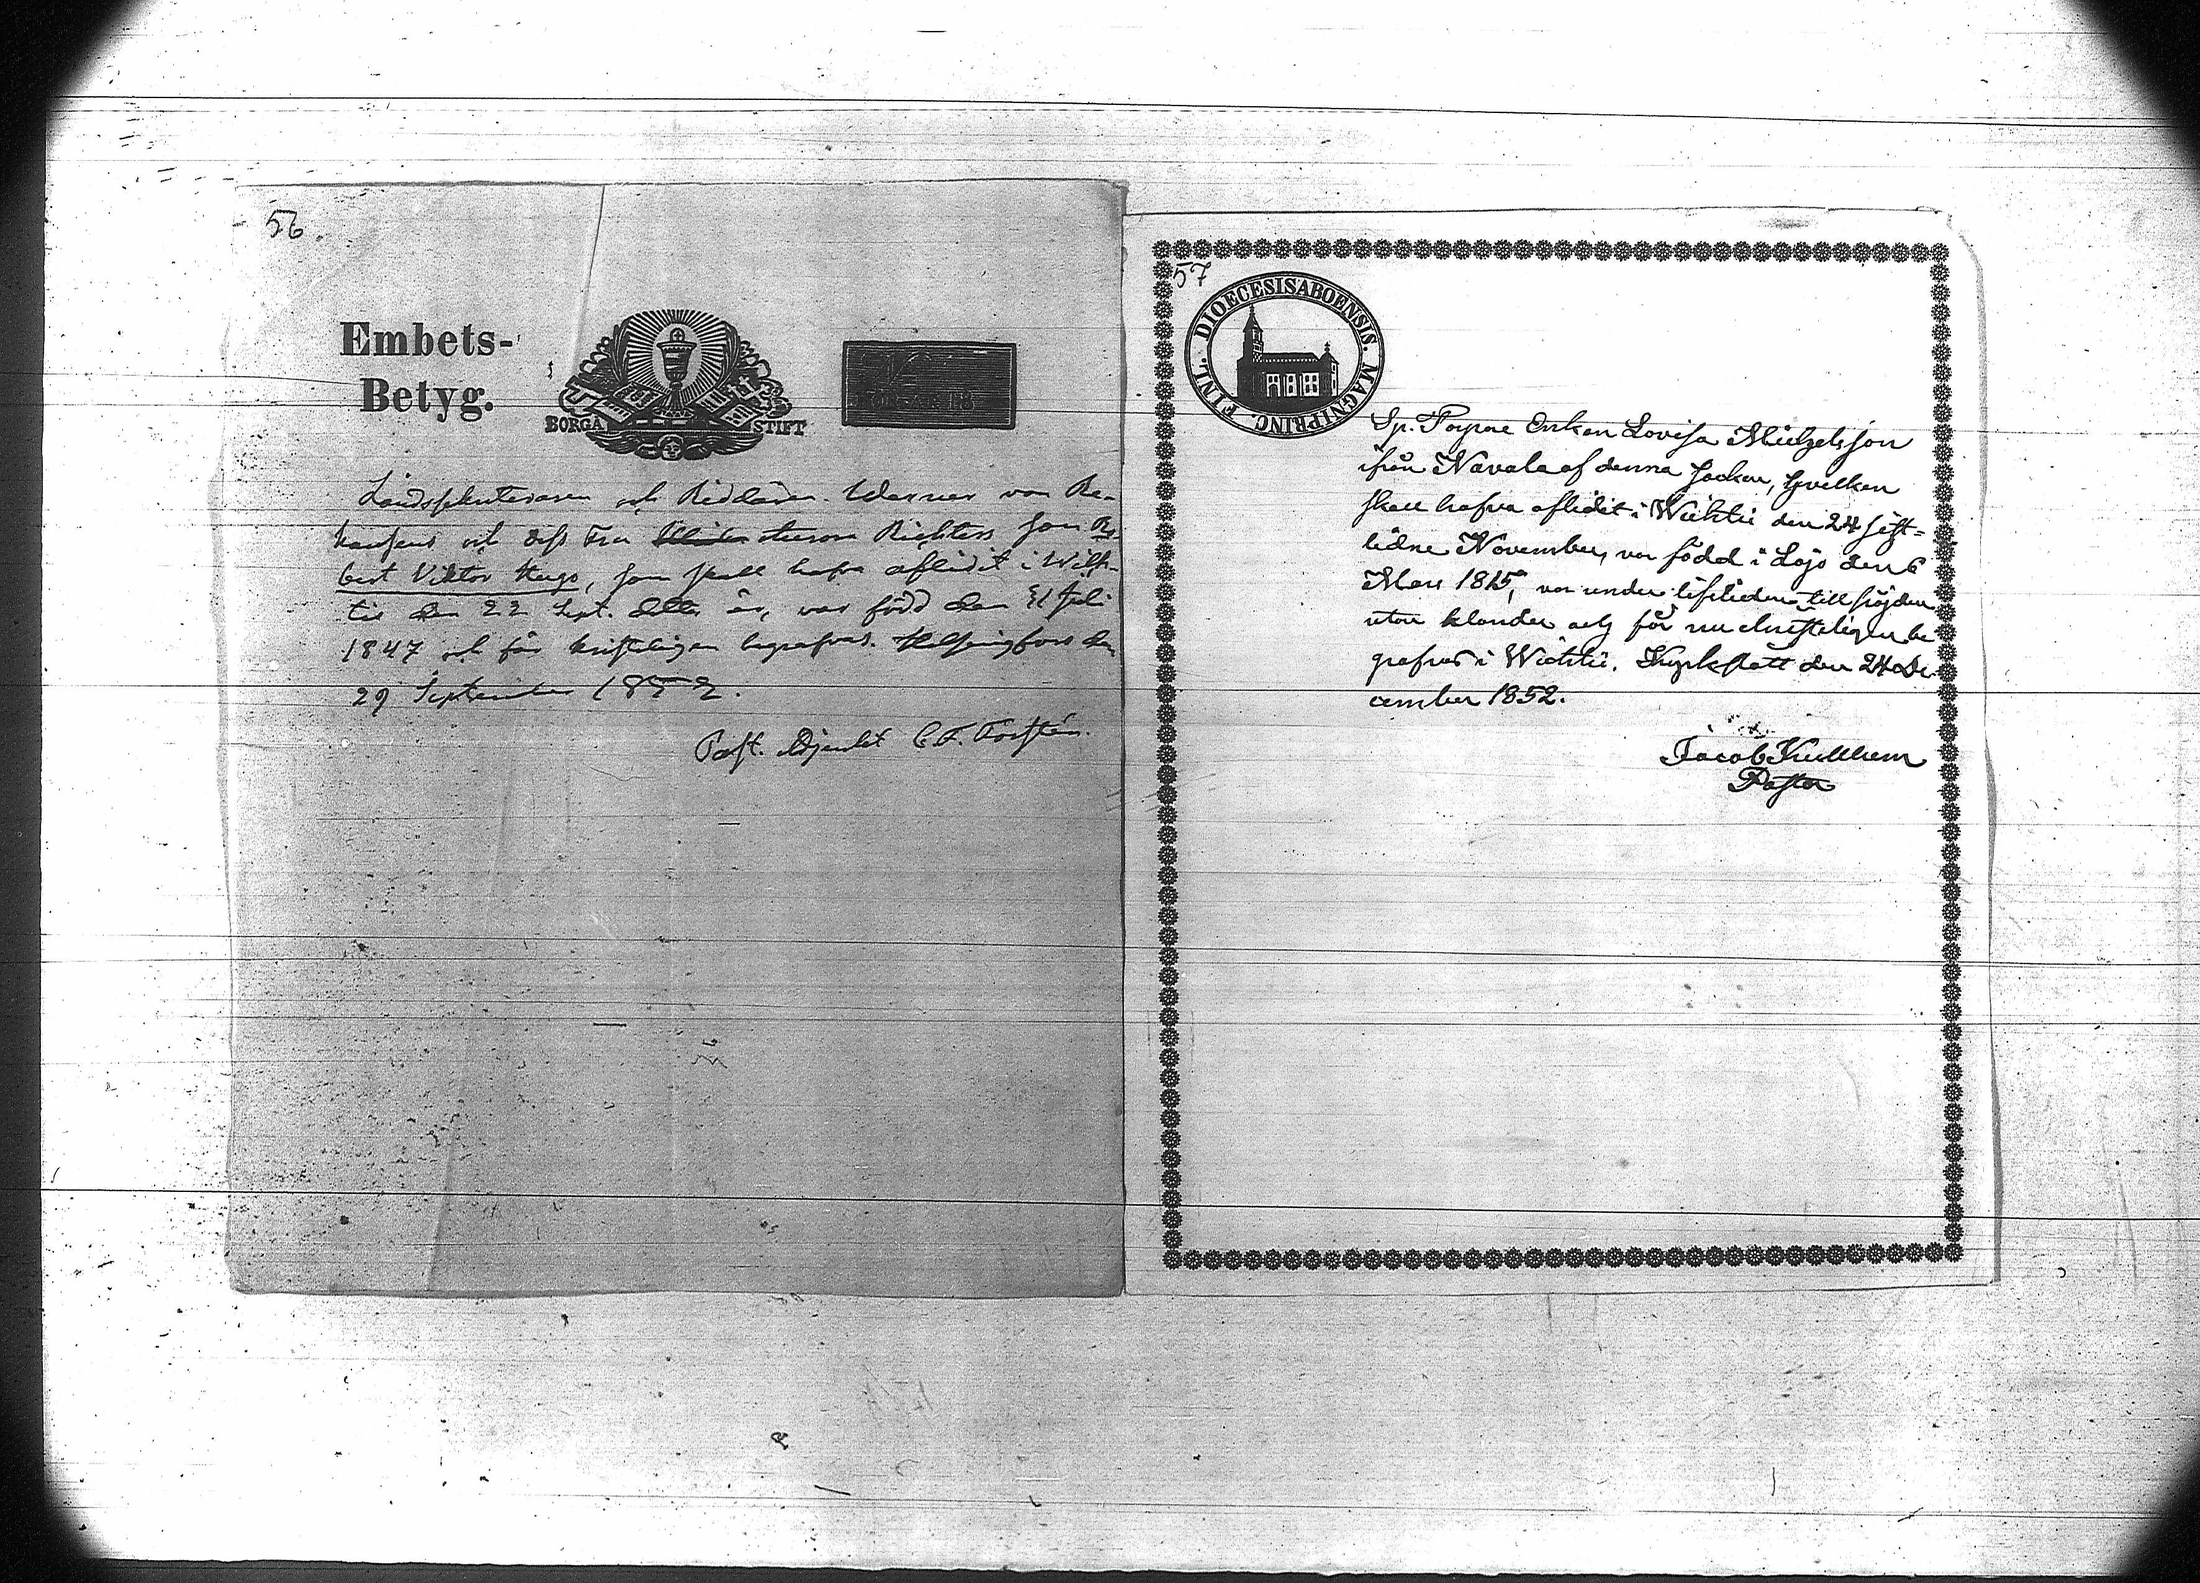 56.
Embets-
Betyg.
BORGÅ STIFT
Landssekreteraren och Riddaren Werner von
och dess Fru Richters son
bert Viktor Hugo, som skall hafva aflidit i Wikh-
tis den 22 Sept. detta år, var född den 31 Juli
1847 och får kristeligen begrafvas. Helsingfors den
29 September 1852.
Past. Adjunkt C. F. Forstén.
57
DIOECESIS ABOENSIS. MAGNI PRINC. FINL.
Enkan Lovisa
ifrån Navala af denna Socken, hvilken
skall hafva aflidit i Wichtis den 24 sist-
lidne November, var född i Lojo den 6
Mars 1815, var under lifstiden till sejder
utan klander och får nu christeligen be
grafvas i Wichtis. Kyrkslätt den 24 De-
cember 1852.
Jacob
Pastor